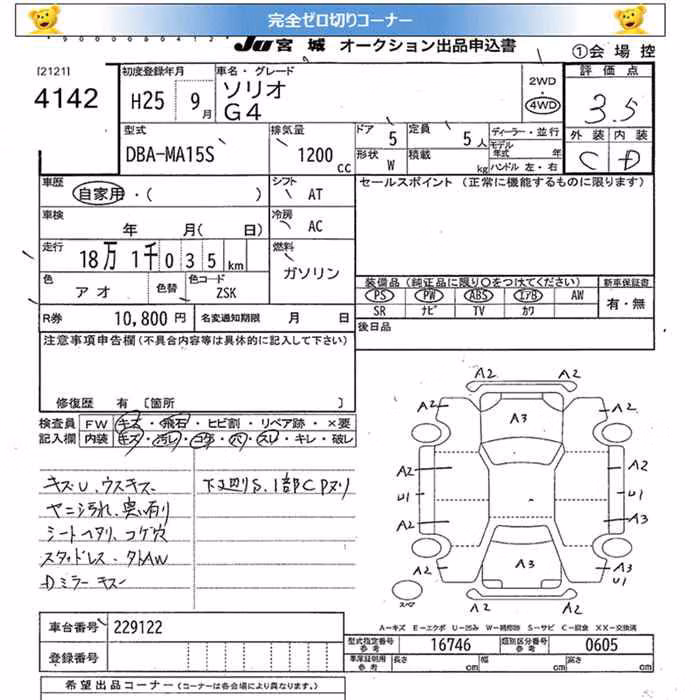 完全ゼロ切りコーナー
Ju 宮 城 オークション出品申込書
①会 場 控
[2121]
4142
初度登録年月
H25 9月
車名・グレード
ソリオ
G4
2WD
・
4WD
評 価 点
3.5
外 装 内 装
C D
型式
DBA-MA15S
排気量
1200 cc
ドア
5
定員
5人
ディーラー・並行
モデル年式 年
形状
W
積載 kg
ハンドル 左・右
車歴
自家用・( )
シフト
AT
セールスポイント (正常に機能するものに限ります)
車検
年 月( 日)
冷房
AC
走行
18万 1千 0 3 5 km
燃料
ガソリン
色
アオ
色替
色コード
ZSK
装備品(純正品に限り○をつけてください)
新車保証書
PS PW ABS エアB AW
有・無
SR ナビ TV カワ
R券 10,800 円
名変通知期限 月 日
後日品
注意事項申告欄(不具合内容等は具体的に記入して下さい)
修復歴 有〔箇所 〕
検査員記入欄
FW キズ・飛石・ヒビ割・リペア跡・×要
内装 キズ・汚レ・コゲ・穴・スレ・キレ・破レ
キズU、ウスキズー
下辺りS.1部CPヌリ
ヤニ汚れ、臭い有り
シートヘタリ、コゲ穴
スタッドレス・外AW
Dミラーキズー
A2 A2
A2 A3 A2
A2 A2
U1 U1
A2 A3
A2 A3 A3
U1
A2 A2
スペア
A-キズ E-エクボ U-凹み W-補修跡 S-サビ C-腐食 XX-交換済
車台番号 229122
登録番号
型式指定番号 参考 16746
類別区分番号 参考 0605
車庫証明用 参考 長さ cm 幅 cm 高さ cm
希望出品コーナー (コーナーは各会場により異なります。)